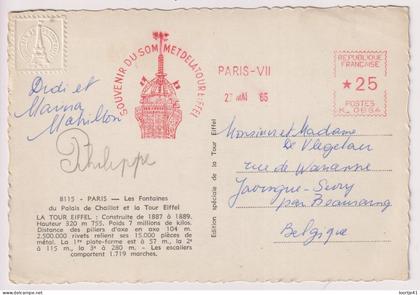 SOUVENIR DU SOMMET DE LA TOUR EIFFEL
PARIS-VII
MAI 65
REPUBLIQUE
FRANCAISE
★25
POSTES
Didi et
Philippe
Monsieur et Madame
rue de
par Beauraing
Belgique
Edition spéciale de la Tour Eiffel
8115 - PARIS — Les Fontaines
du Palais de Chaillot et la Tour Eiffel
LA TOUR EIFFEL : Construite de 1887 à 1889.
Hauteur 320 m 755. Poids 7 millions de kilos.
Distance des piliers d'axe en axe 104 m.
2.500.000 rivets relient ses 15.000 pièces de
métal. La 1re plate-forme est à 57 m., la 2e
à 115 m., la 3e à 280 m. - Les escaliers
comportent 1.719 marches.